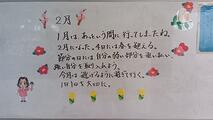 2月
1月は、あっという間に行ってしまったね。
2月になった。4日には春を迎える。
節分の日には自分の弱い部分を追い出し、
強い自分を取り入れよう。
今月は逃げるように過ぎて行く。
1日1日を大切に。